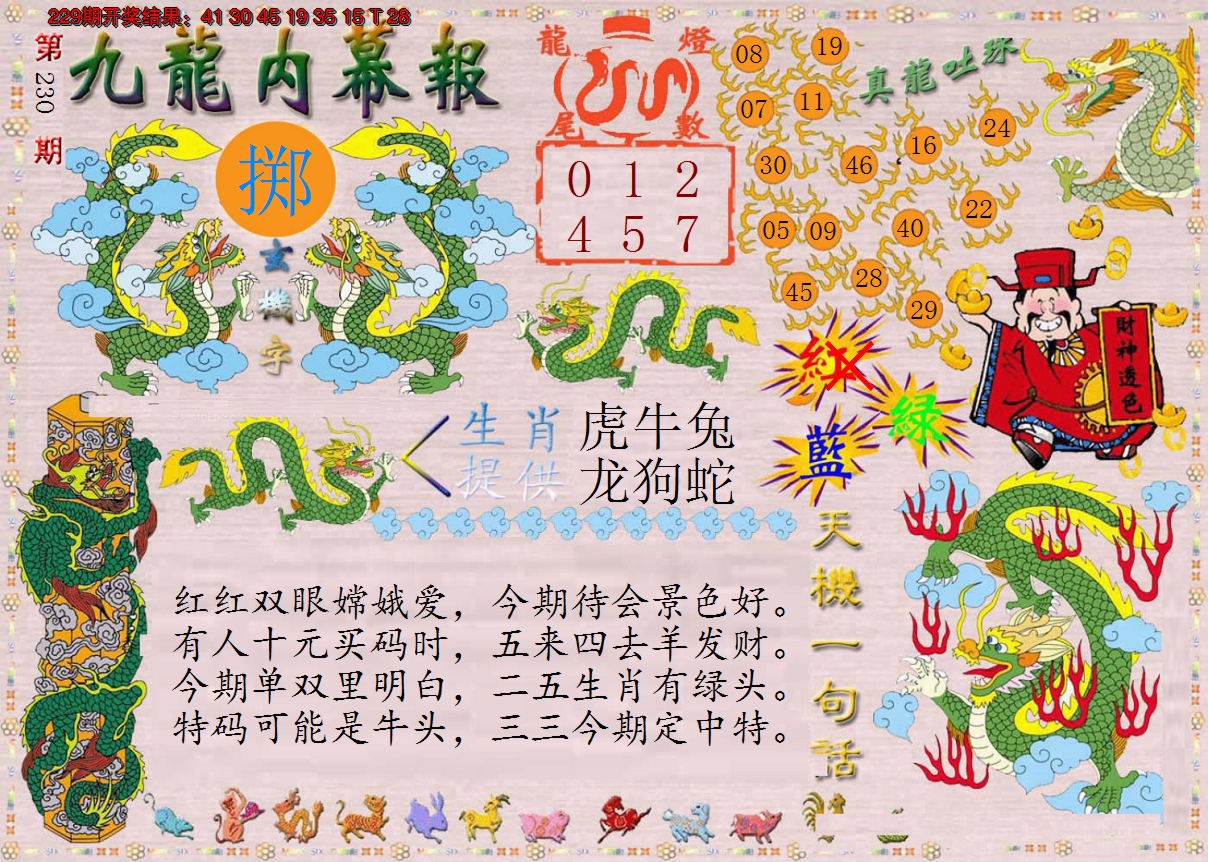 229期开奖结果：41 30 45 19 35 15 T 28
第230期
九龍内幕報
掷
玄機字
龍燈尾數
0 1 2
4 5 7
真龍吐珠
08 19
07 11
30 46 16 24
05 09 40 22
45 28 29
紅
綠
藍
財神透色
生肖提供
虎牛兔
龙狗蛇
天機一句話
红红双眼嫦娥爱，今期待会景色好。
有人十元买码时，五来四去羊发财。
今期单双里明白，二五生肖有绿头。
特码可能是牛头，三三今期定中特。